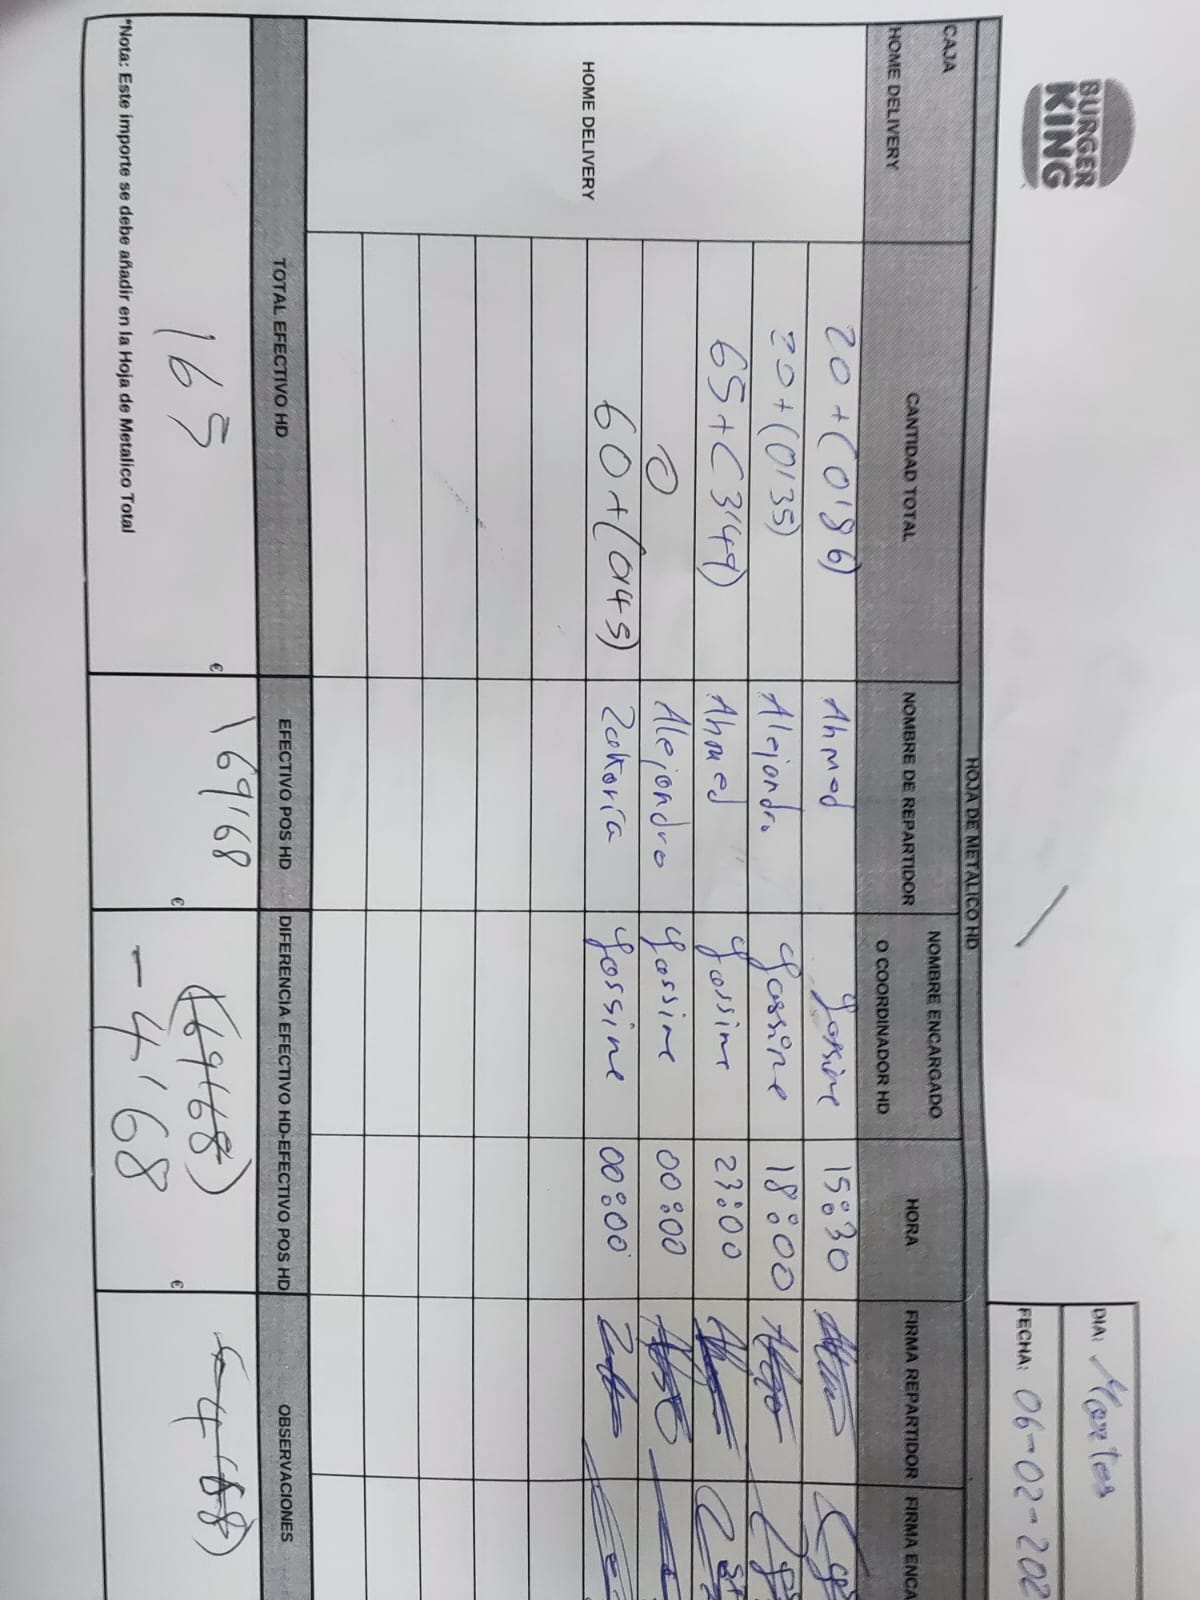 BURGER
KING
DIA: Martes
FECHA: 06-02-202
HOJA DE METALICO HD
CAJA
HOME DELIVERY
CANTIDAD TOTAL
NOMBRE DE REPARTIDOR
NOMBRE ENCARGADO
O COORDINADOR HD
HORA
FIRMA REPARTIDOR
FIRMA ENCA
20 + (0'86) Ahmed Yassine 15:30
20 + (0'35) Alejandro Yassine 18:00
65 + (3'49) Ahmed Yassine 23:00
0 Alejandro Yassine 00:00
60 + (0'45) Zakaría Yassine 00:00
HOME DELIVERY
TOTAL EFECTIVO HD
EFECTIVO POS HD
DIFERENCIA EFECTIVO HD-EFECTIVO POS HD
OBSERVACIONES
165 €
169'68 €
(169'68) €
-4'68
*Nota: Este importe se debe añadir en la Hoja de Metalico Total